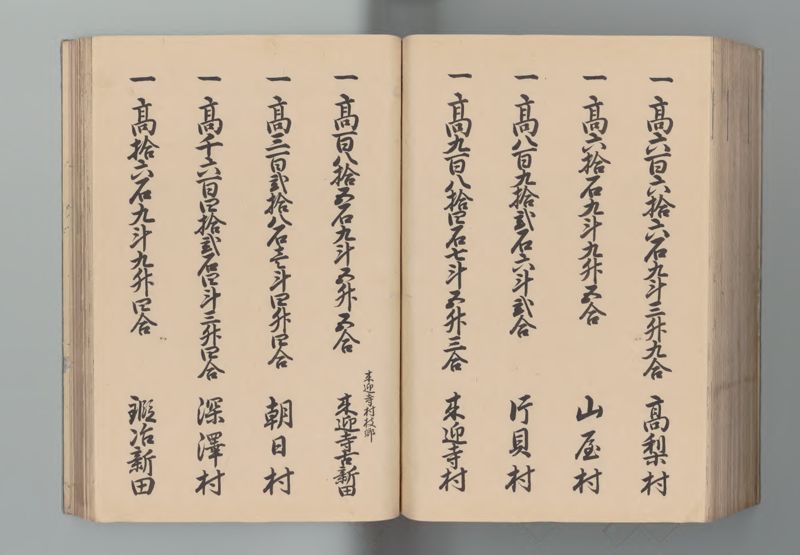 一 高六百六拾六石九斗三升九合 高梨村
一 高六拾石九斗九升五合 山屋村
一 高八百九拾弐石六斗弐合 片貝村
一 高九百八拾四石七斗五升三合 来迎寺村
来迎寺村枝郷
一 高百八拾五石九斗五升五合 来迎寺古新田
一 高三百弐拾八石壱斗四升四合 朝日村
一 高千六百四拾弐石四斗三升四合 深澤村
一 高拾六石九斗九升四合 鍛冶新田